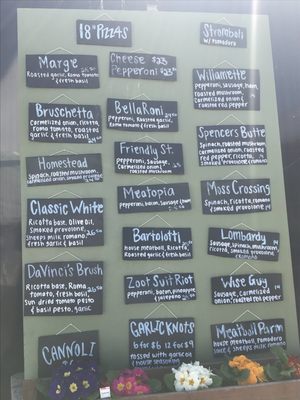 18" Pizzas
Stromboli
w/ Pomodoro
Marge
Roasted garlic, Roma
& fresh basil
Cheese $23
Pepperoni
Willamette
Pepperoni, sausage, ham,
roasted mushroom,
carmelized onion &
roasted red pepper
Bruschetta
Carmelized onion, ricotta,
Roma tomato, roasted
garlic & fresh basil
BellaRani
Pepperoni, roasted garlic, ricotta
& fresh basil
Spencers Butte
Spinach, roasted mushroom,
carmelized onion, roasted
red pepper, ricotta
& smoked provolone
Homestead
Spinach, roasted mushroom,
Friendly St.
Pepperoni, sausage,
Meatopia
Pepperoni, sausage, bacon, ham
Moss Crossing
Carmelized onion, ricotta,
& smoked provolone
Classic White
Ricotta base, Olive oil,
smoked provolone,
sheeps milk romano,
fresh garlic & basil
Bartolotti
house meatball, ricotta,
roasted garlic & fresh basil
Lombardy
Sausage, spinach, mushroom
& smoked provolone
DaVinci's Brush
Ricotta base, Roma
tomato, fresh basil,
sun dried tomato pesto
& basil pesto
Zoot Suit Riot
pepperoni, bacon, pineapple
& jalapeno
Wise Guy
Sausage, carmelized
onion, roasted
Cannoli
Garlic Knots
6 for $ 12 for $9
tossed with garlic oil
& house seasoning
Meatball Parm
House meatball, pomodoro
& sheeps milk romano